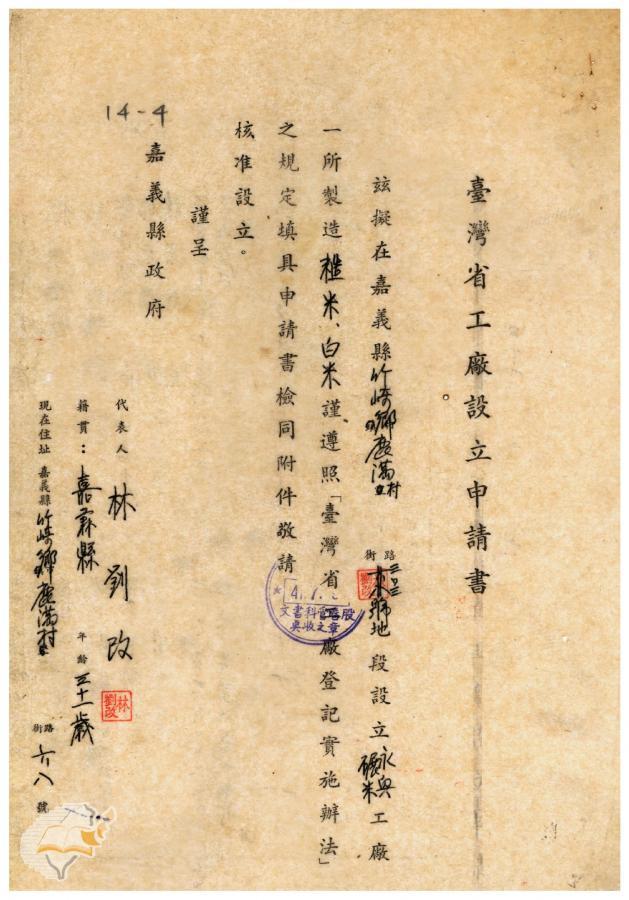 臺灣省工廠設立申請書
玆擬在嘉義縣竹崎鄉鹿滿村 路街 號地段設立永興碾米工廠
一所製造糙米、白米謹遵照「臺灣省工廠登記實施辦法」
之規定填具申請書檢同附件敬請
核准設立。
謹呈
嘉義縣政府
代表人 林劉改
籍貫：嘉義縣 年齡 三十一歲
現在住址 嘉義縣竹崎鄉鹿滿村 路街 六八 號
14-4
林劉改